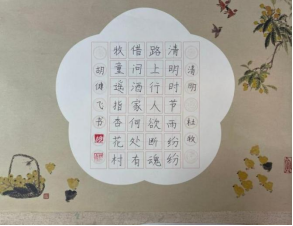 清明 杜牧
清明时节雨纷纷
路上行人欲断魂
借问酒家何处有
牧童遥指杏花村
胡 飞书